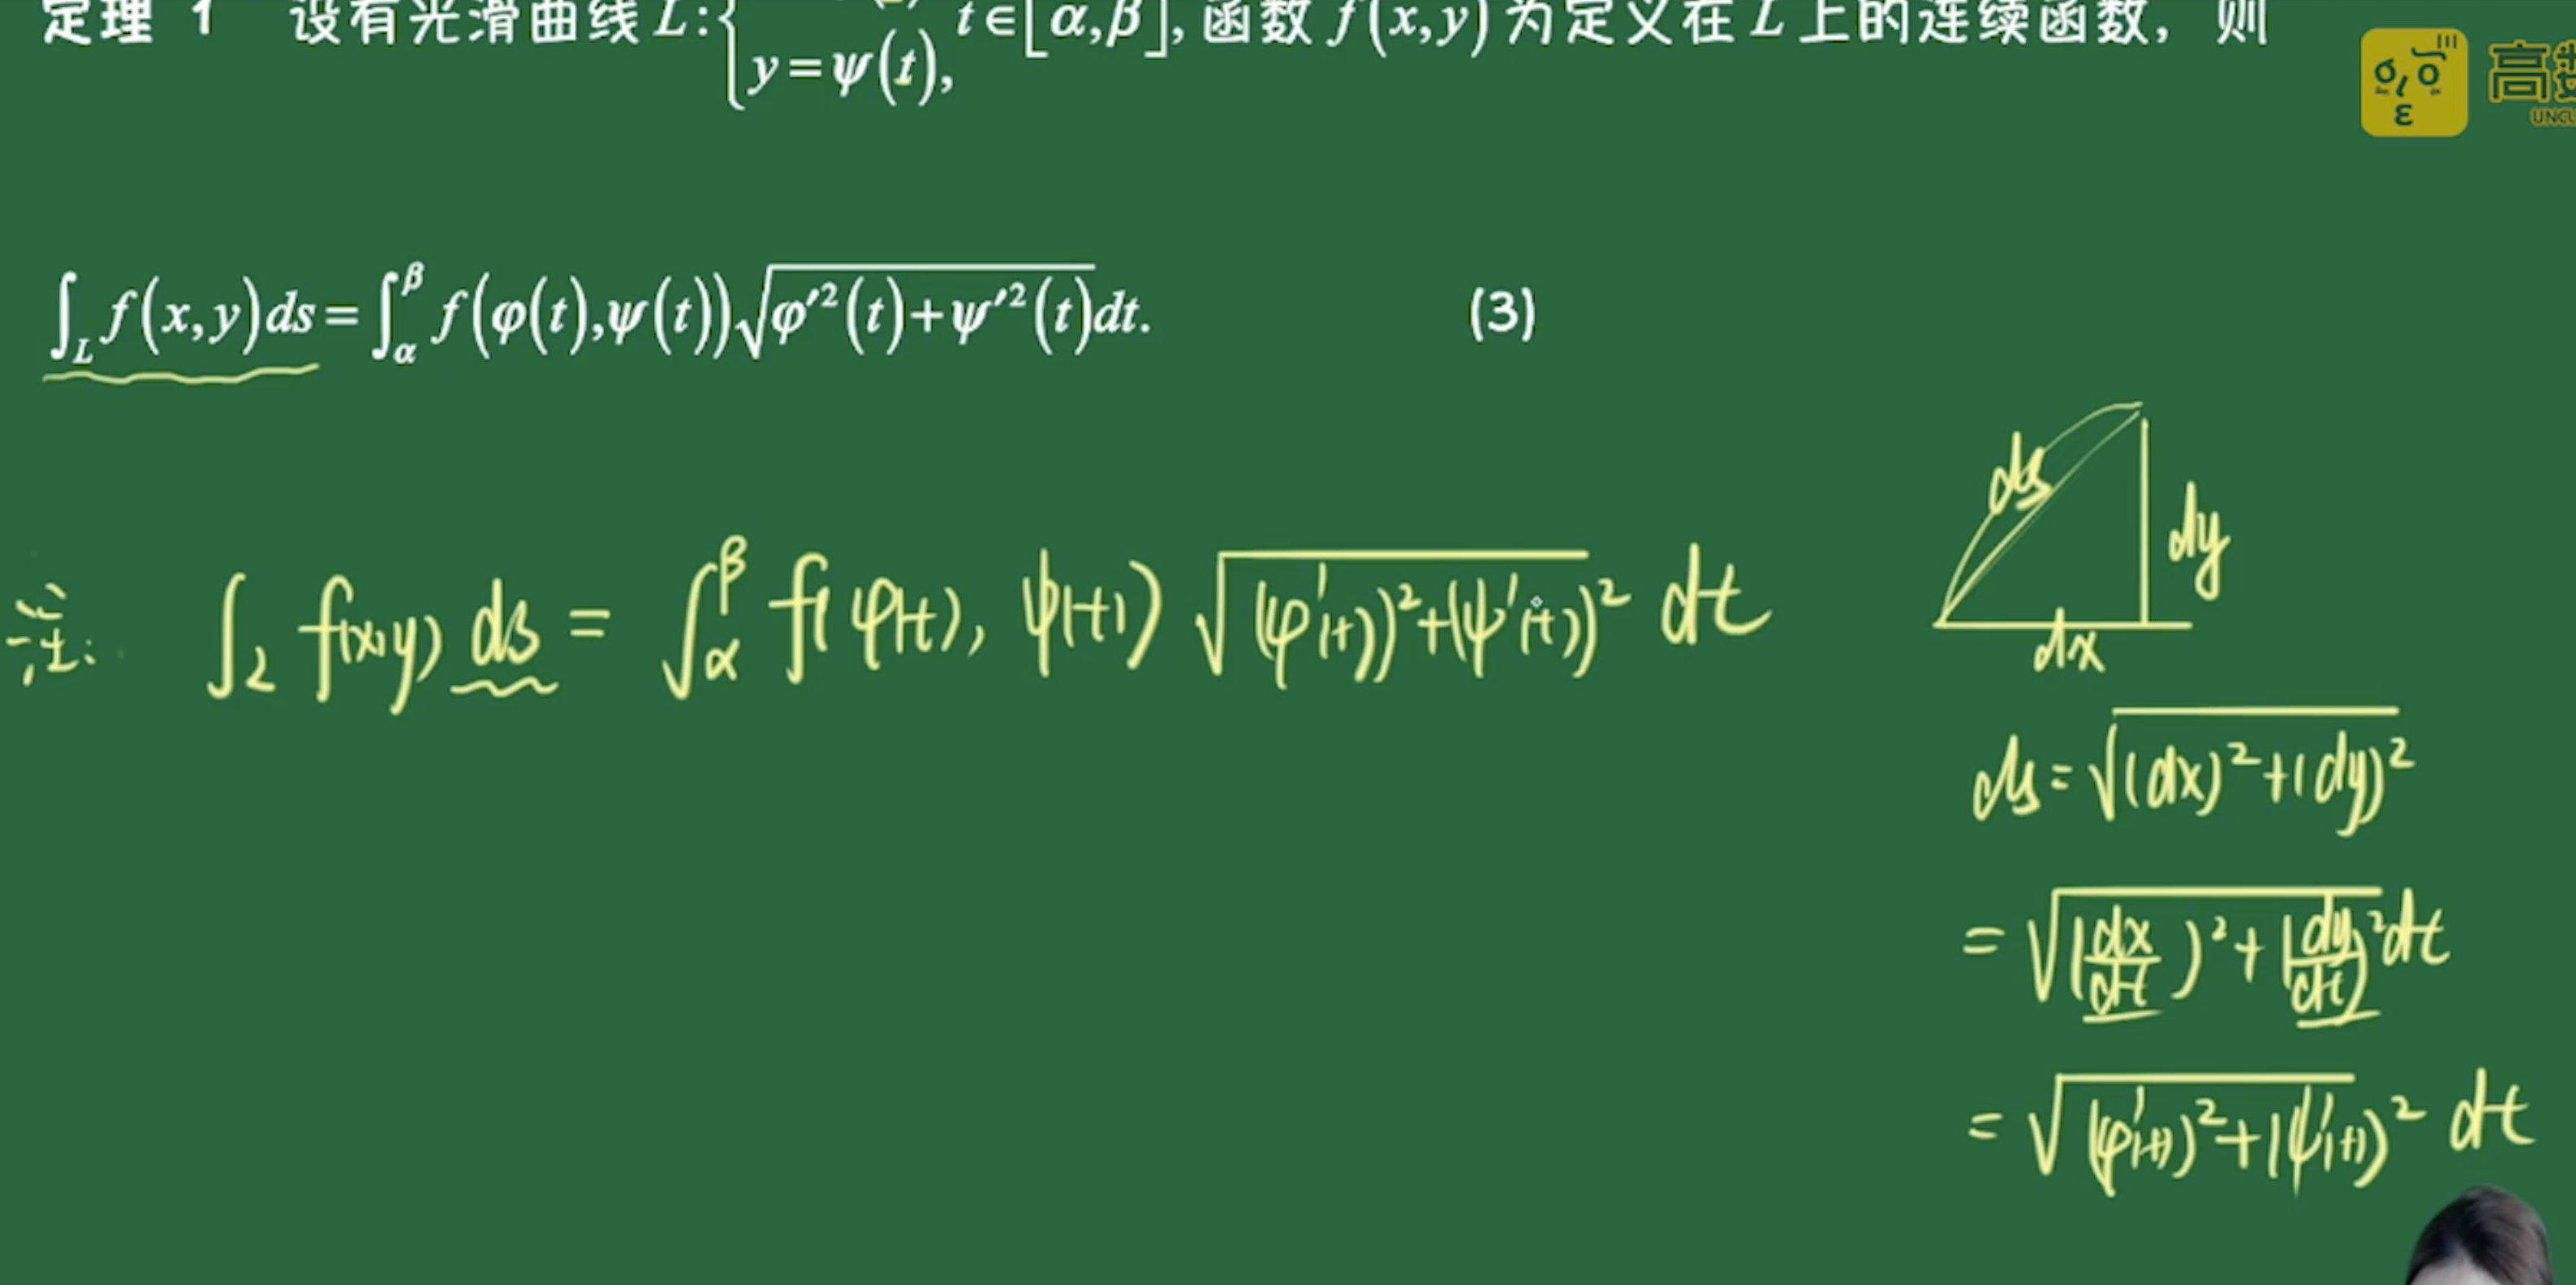 定理 1 设有光滑曲线 L:{ t∈[α,β], 函数 f(x,y) 为定义在 L 上的连续函数, 则
y=ψ(t),
高数
UNCL
∫_L f(x,y)ds=∫_α^β f(φ(t),ψ(t))√(φ′²(t)+ψ′²(t))dt. (3)
ds
dy
dx
注: ∫_L f(x,y) ds = ∫_α^β f(φ(t), ψ(t)) √((φ′(t))²+(ψ′(t))²) dt
ds=√((dx)²+(dy)²)
=√((dx/dt)²+(dy/dt)²) dt
=√((φ′(t))²+(ψ′(t))²) dt